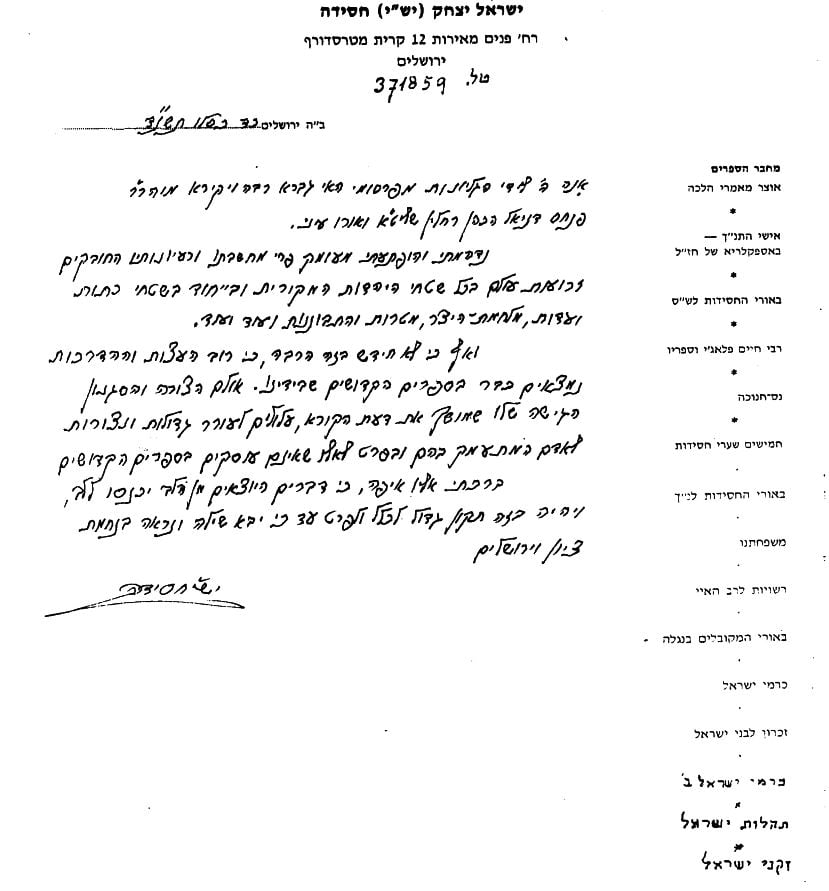 ישראל יצחק (יש"י) חסידה
רח' פנים מאירות 12 קרית מטרסדורף
ירושלים
טל. 371859
ב"ה ירושלים כד כסלו תש"ד
אנה ה' לידי גליונות מפרסומי האי גברא רבה ויקירא מוהר"ר
פנחס דניאל הכהן שליט"א ואורו עיני.
נדהמתי והופתעתי מעומק פרי מחשבתו ורעיונותיו החובקים
זרועות עולם בכל שטחי היהדות המקורית ובייחוד בשטחי כתות
ועדות, מלחמת-היצר, מטרות והתבוננות ועוד ועוד.
ואף כי לא חידש בזה הרבה, כי רוב העצות וההדרכות
נמצאים כבר בספרים הקדושים שבידינו. אולם הצורה והסגנון
הגישה שלו שמושך את דעת הקורא, עלולים לעורר גדולות ונצורות
לאדם המתעמק בהם ובפרט לאלו שאינם עוסקים בספרים הקדושים
ברכתי אליו איפה, כי דברים היוצאים מן הלב יכנסו ללב,
ויהיה בזה תקון גדול לכלל ולפרט עד כי יבא שילה ונראה בנחמת
ציון וירושלים
יש"י חסידה
מחבר הספרים
אוצר מאמרי הלכה
*
אישי התנ"ך —
באספקלריא של חז"ל
*
באורי החסידות לש"ס
*
רבי חיים פלאג'י וספריו
*
נס-חנוכה
*
חמישים שערי חסידות
באורי החסידות לנ"ך
משפחתנו
רשויות לרב האיי
באורי המקובלים בנגלה
כרמי ישראל
זכרון לבני ישראל
כרמי ישראל ב'
*
תהלות ישראל
*
זקני ישראל